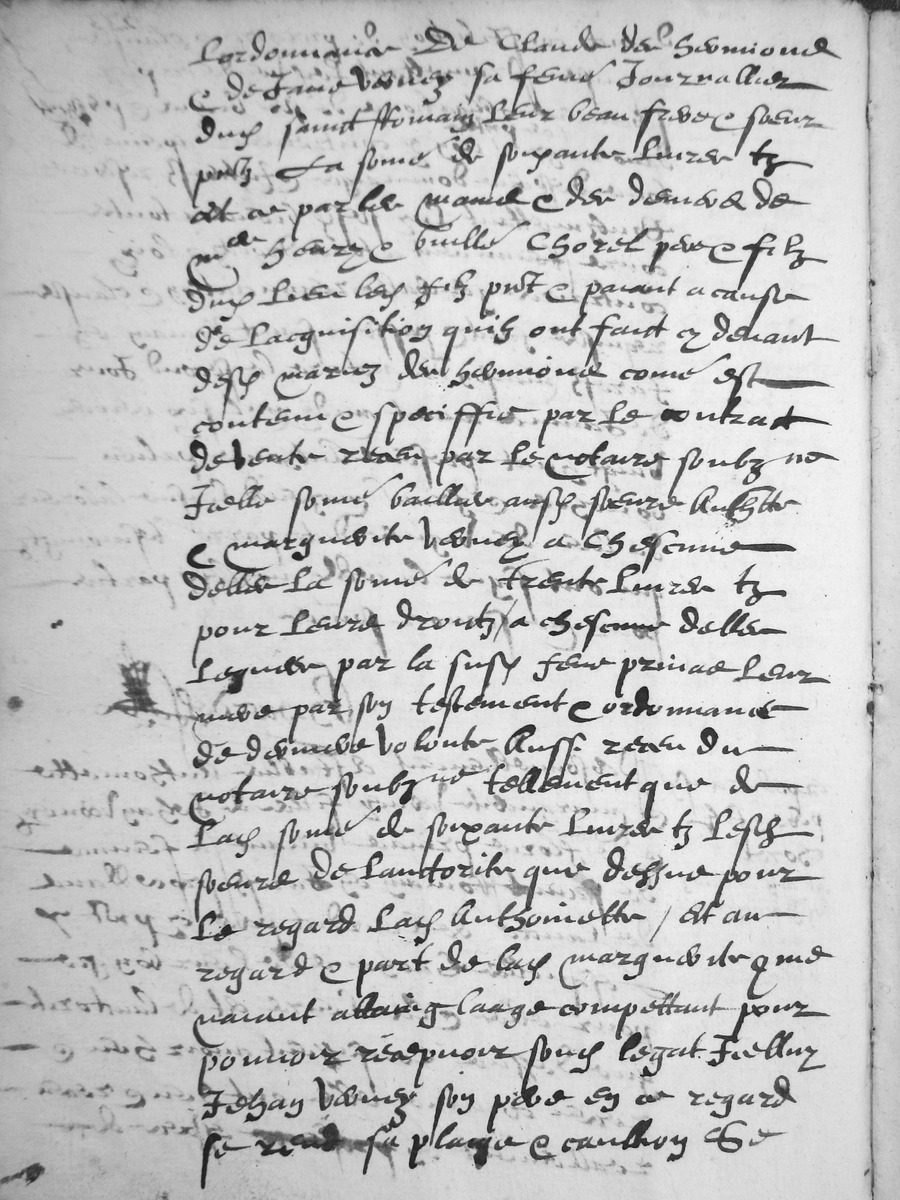 Lordonnance De Claude des hermioud
& de Jane Verney sa feme Journallier
dud saint Romain leur beau frere & soeur
pntz La some de soixante livres tz
et ce par les mains & des deniers de
mes Henry & Guille Chorel pere & filz
dud Lieu led filz pnt & paiant a cause
de Lacquisition quilz ont faict cy devant
desd mariez des hermioud come est
contenu & speciffie par le contract
de vente receu par le notaire soubz ne
Icelle some baillee ausd soeurs Anthtte
& marguerite Verney a Chescune
delles La some de trente Livres tz
pour leurs droictz / a chescune delles
Leguees par la susd feue leur
mere par son testement & ordonnance
de derniere volonte Aussi receu du
notaire soubz ne tellement que de
Lad some de soixante Livres tz Lesd
soeurs de lauctorite que dessus pour
Le regard Lad Anthoinette / Et au
regard & part de lad marguerite come
naiant attaing laage compettant pour
pouvoir recepvoir sond legat Icelluy
Jehan Verney son pere en ce regard
se rend sa plaige & caution